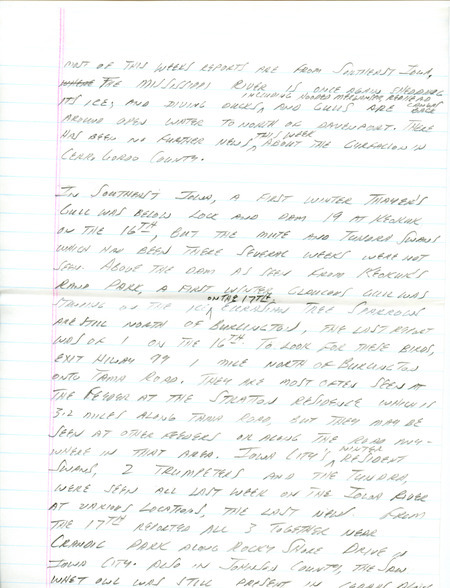 MOST OF THIS WEEKS REPORTS ARE FROM SOUTHEAST IOWA,
WHERE THE MISSISSIPPI RIVER IS ONCE AGAIN SHEDDING
INCLUDING HOODED MERGANSER, REDHEAD
ITS ICE, AND DIVING DUCKS, AND GULLS ARE BACK
AROUND OPEN WATER TO NORTH OF DAVENPORT. THERE
HAS BEEN NO FURTHER NEWS THIS WEEK ABOUT THE GYRFALCON IN
CERRO GORDO COUNTY.
IN SOUTHEAST IOWA, A FIRST WINTER THAYER'S
GULL WAS BELOW LOCK AND DAM 19 AT KEOKUK
ON THE 16TH, BUT THE MUTE AND TUNDRA SWANS
WHICH HAD BEEN THERE SEVERAL WEEKS WERE NOT
SEEN. ABOVE THE DAM AS SEEN FROM KEOKUK'S
RAND PARK, A FIRST WINTER GLAUCOUS GULL WAS
STANDING ON THE ICE ON THE 17TH. EURASIAN TREE SPARROWS
ARE STILL NORTH OF BURLINGTON, THE LAST REPORT
WAS OF 1 ON THE 16TH. TO LOOK FOR THESE BIRDS,
EXIT HIWAY 99 1 MILE NORTH OF BURLINGTON
ONTO TAMA ROAD. THEY ARE MOST OFTEN SEEN AT
THE FEEDER AT THE STRATTON RESIDENCE WHICH IS
3.2 MILES ALONG TAMA ROAD, BUT THEY MAY BE
SEEN AT OTHER FEEDERS OR ALONG THE ROAD ANY-
WHERE IN THAT AREA. IOWA CITY'S WINTER RESIDENT
SWANS, 2 TRUMPETERS AND THE TUNDRA,
WERE SEEN ALL LAST WEEK ON THE IOWA RIVER
AT VARIOUS LOCATIONS, THE LAST NEWS FROM
THE 17TH REPORTED ALL 3 TOGETHER NEAR
CRANDIC PARK ALONG ROCKY SHORE DRIVE IN
IOWA CITY. ALSO IN JOHNSON COUNTY, THE SAW
WHET OWL WAS STILL PRESENT IN CEDARS ALONG